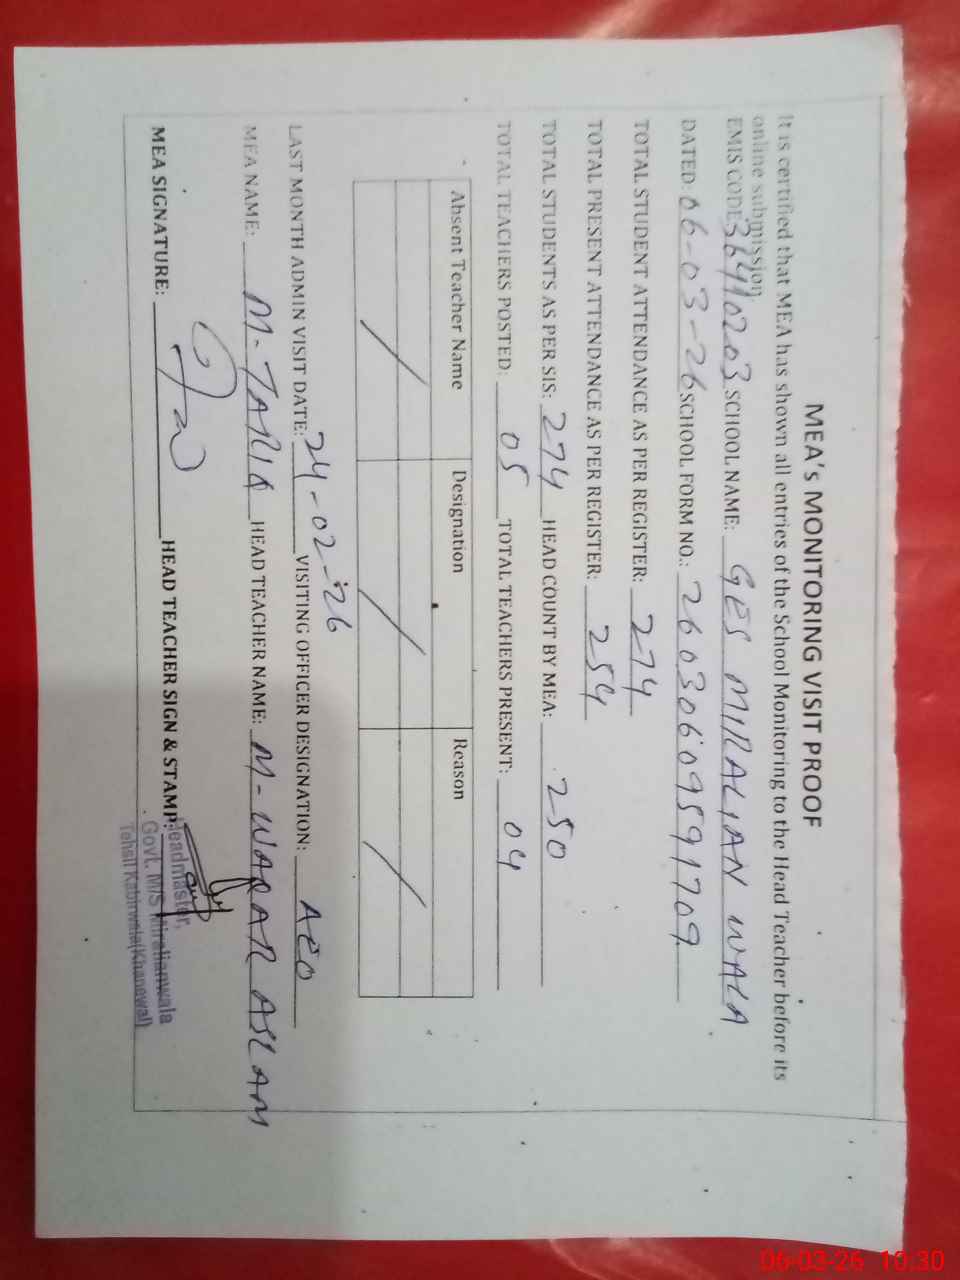 MEA's MONITORING VISIT PROOF
It is certified that MEA has shown all entries of the School Monitoring to the Head Teacher before its
online submission
EMIS CODE 36410203 SCHOOL NAME: GES MIRALIAN WALA
DATED: 06-03-26 SCHOOL FORM NO.: 26030609591709
TOTAL STUDENT ATTENDANCE AS PER REGISTER: 274
TOTAL PRESENT ATTENDANCE AS PER REGISTER: 254
TOTAL STUDENTS AS PER SIS: 274 HEAD COUNT BY MEA: 250
TOTAL TEACHERS POSTED: 05 TOTAL TEACHERS PRESENT: 04
Absent Teacher Name Designation Reason
LAST MONTH ADMIN VISIT DATE: 24-02-'26 VISITING OFFICER DESIGNATION: AEO
MEA NAME: M-TARIQ HEAD TEACHER NAME: M-WAQAR ASLAM
MEA SIGNATURE: HEAD TEACHER SIGN & STAMP:
Headmaster,
Govt. M/S Miralianwala
Tehsil Kabirwala(Khanewal)
06-03-26 10:30